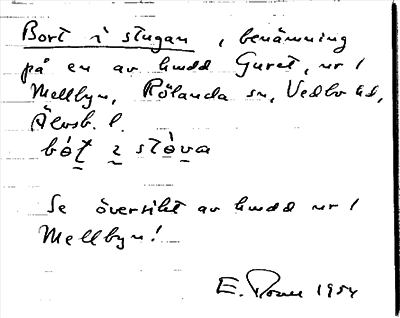 Bort i stugan, benämning
på en av hmdd Guret, nr 1
Mellbyn, Rölanda sn, Vedbo hd,
Älvsb. l.
bót i stòva
Se översikt av hmdd nr 1
Mellbyn!
E. 1954